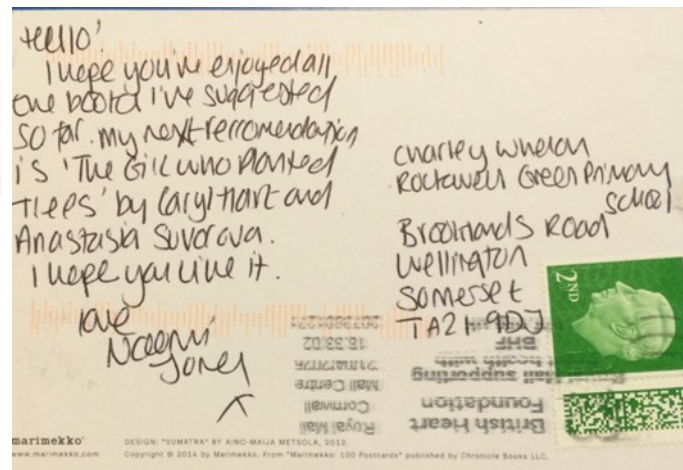 Hello!
I hope you've enjoyed all
the books I've suggested
so far. My next reccomendation
is 'The Girl who Planted
Trees' by Caryl Hart and
Anastasia Suvorova.
I hope you like it.
love
Naomi
Jones
Charley Whelan
Rockwell Green Primary
School
Brooklands Road
Wellington
Somerset
TA21 9DJ
2ND
Royal Mail
Cornwall
Mail Centre
18.33.02
BHF
British Heart
Foundation
marimekko
www.marimekko.com
DESIGN: "SUMATRA" BY AINO-MAIJA METSOLA, 2012.
Copyright © 2014 by Marimekko. From "Marimekko: 100 Postcards" published by Chronicle Books LLC.